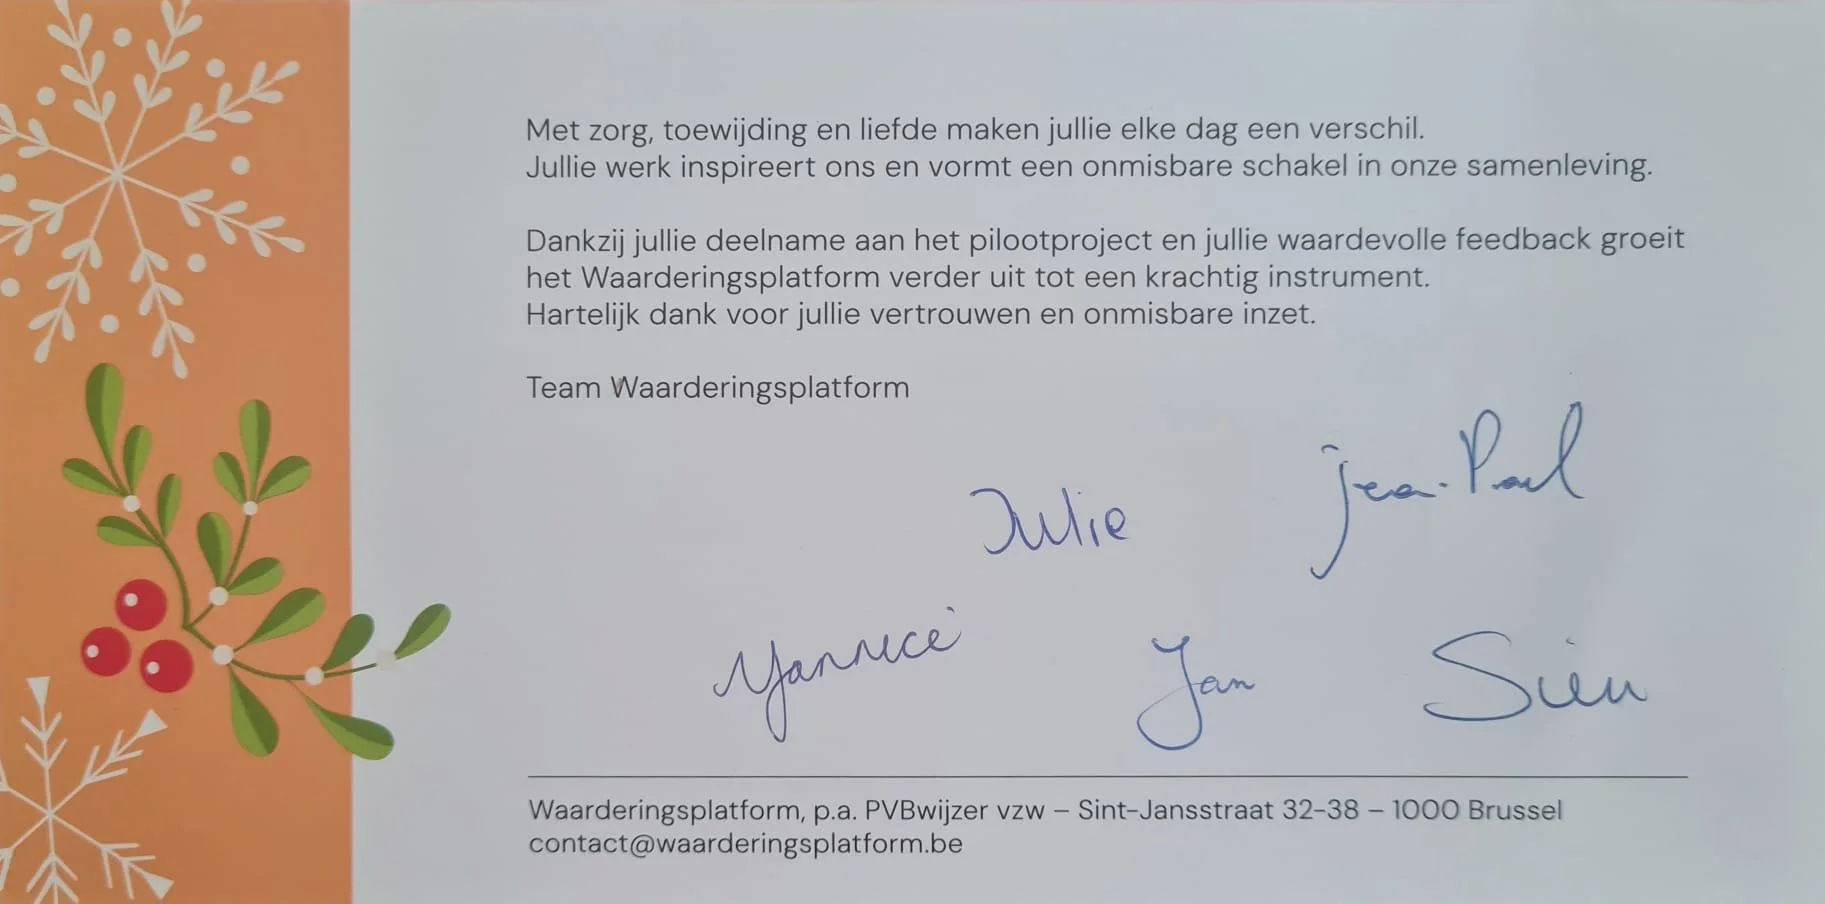 Met zorg, toewijding en liefde maken jullie elke dag een verschil.
Jullie werk inspireert ons en vormt een onmisbare schakel in onze samenleving.
Dankzij jullie deelname aan het pilootproject en jullie waardevolle feedback groeit
het Waarderingsplatform verder uit tot een krachtig instrument.
Hartelijk dank voor jullie vertrouwen en onmisbare inzet.
Team Waarderingsplatform
Jean-Paul
Julie
Jan
Waarderingsplatform, p.a. PVBwijzer vzw – Sint-Jansstraat 32-38 – 1000 Brussel
contact@waarderingsplatform.be